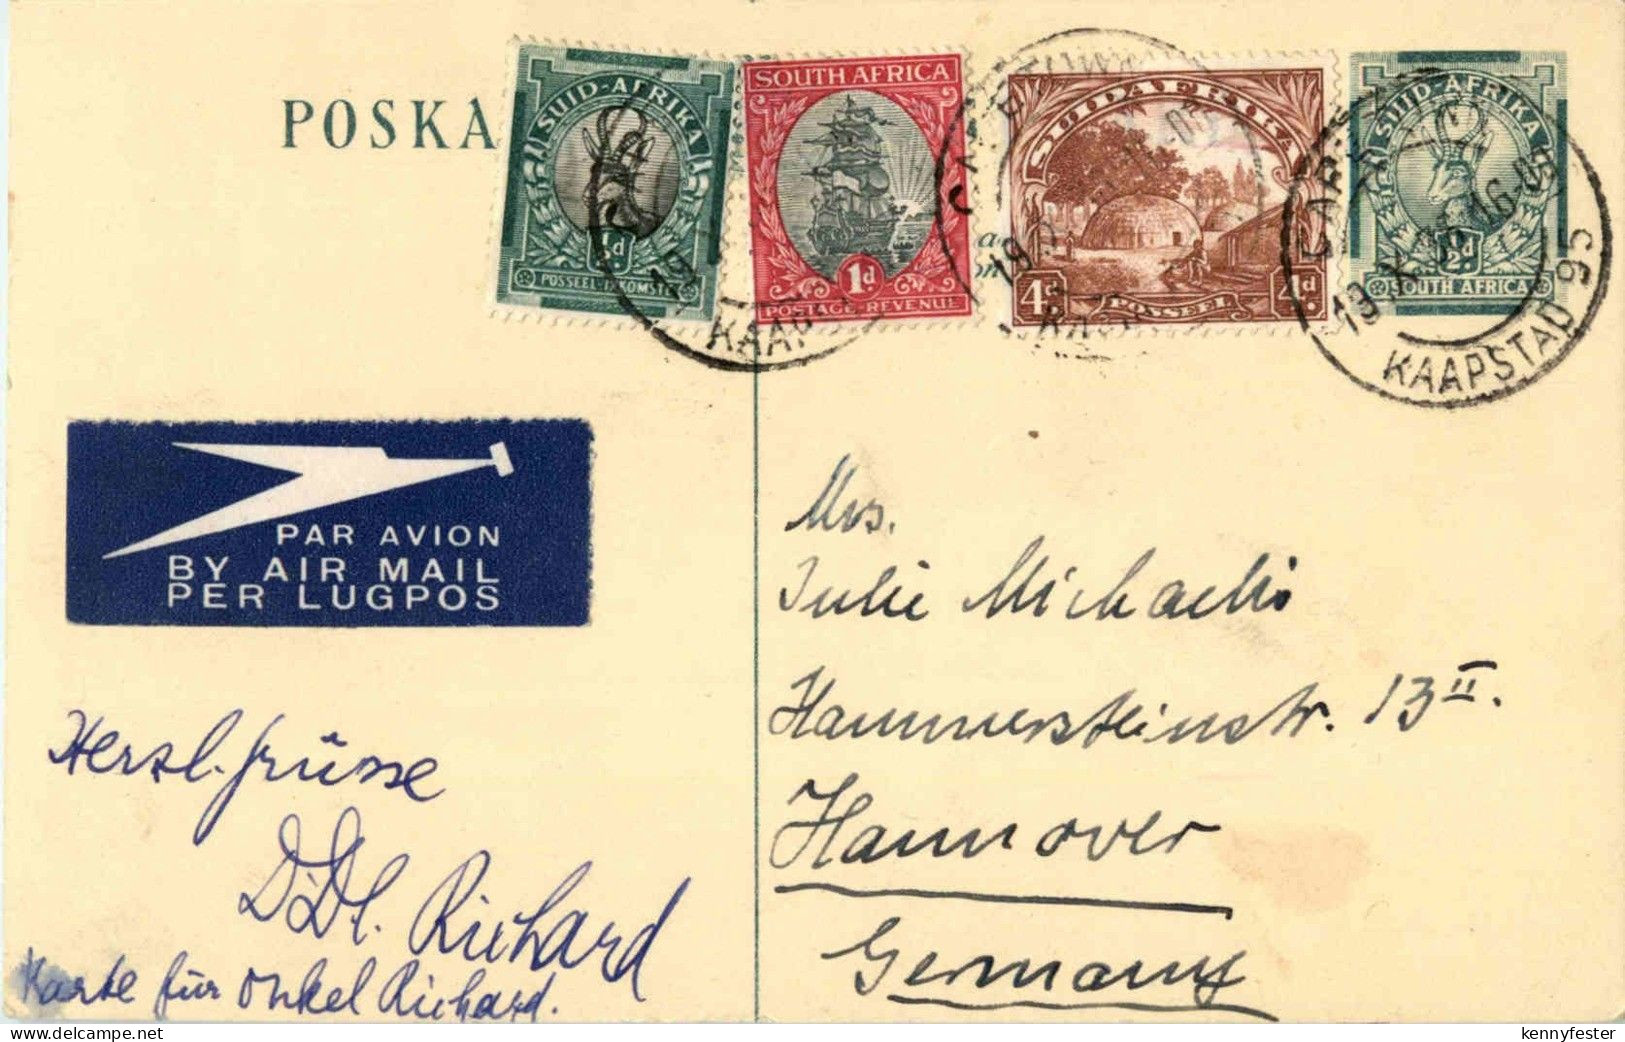 POSKA
SUID-AFRIKA
½d
POSSEEL-INKOMSTE
SOUTH AFRICA
1d
POSTAGE REVENUE
SUIDAFRIKA
4d
4d
POSSEEL
SUID-AFRIKA
½d
SOUTH AFRICA
KAAPSTAD 95
PAR AVION
BY AIR MAIL
PER LUGPOS
Mrs.
Julie Michaelis
Hammersteinstr. 13 II.
Hannover
Germany
Herzl. Grüsse
Richard
Karte für Onkel Richard.
kennyfester